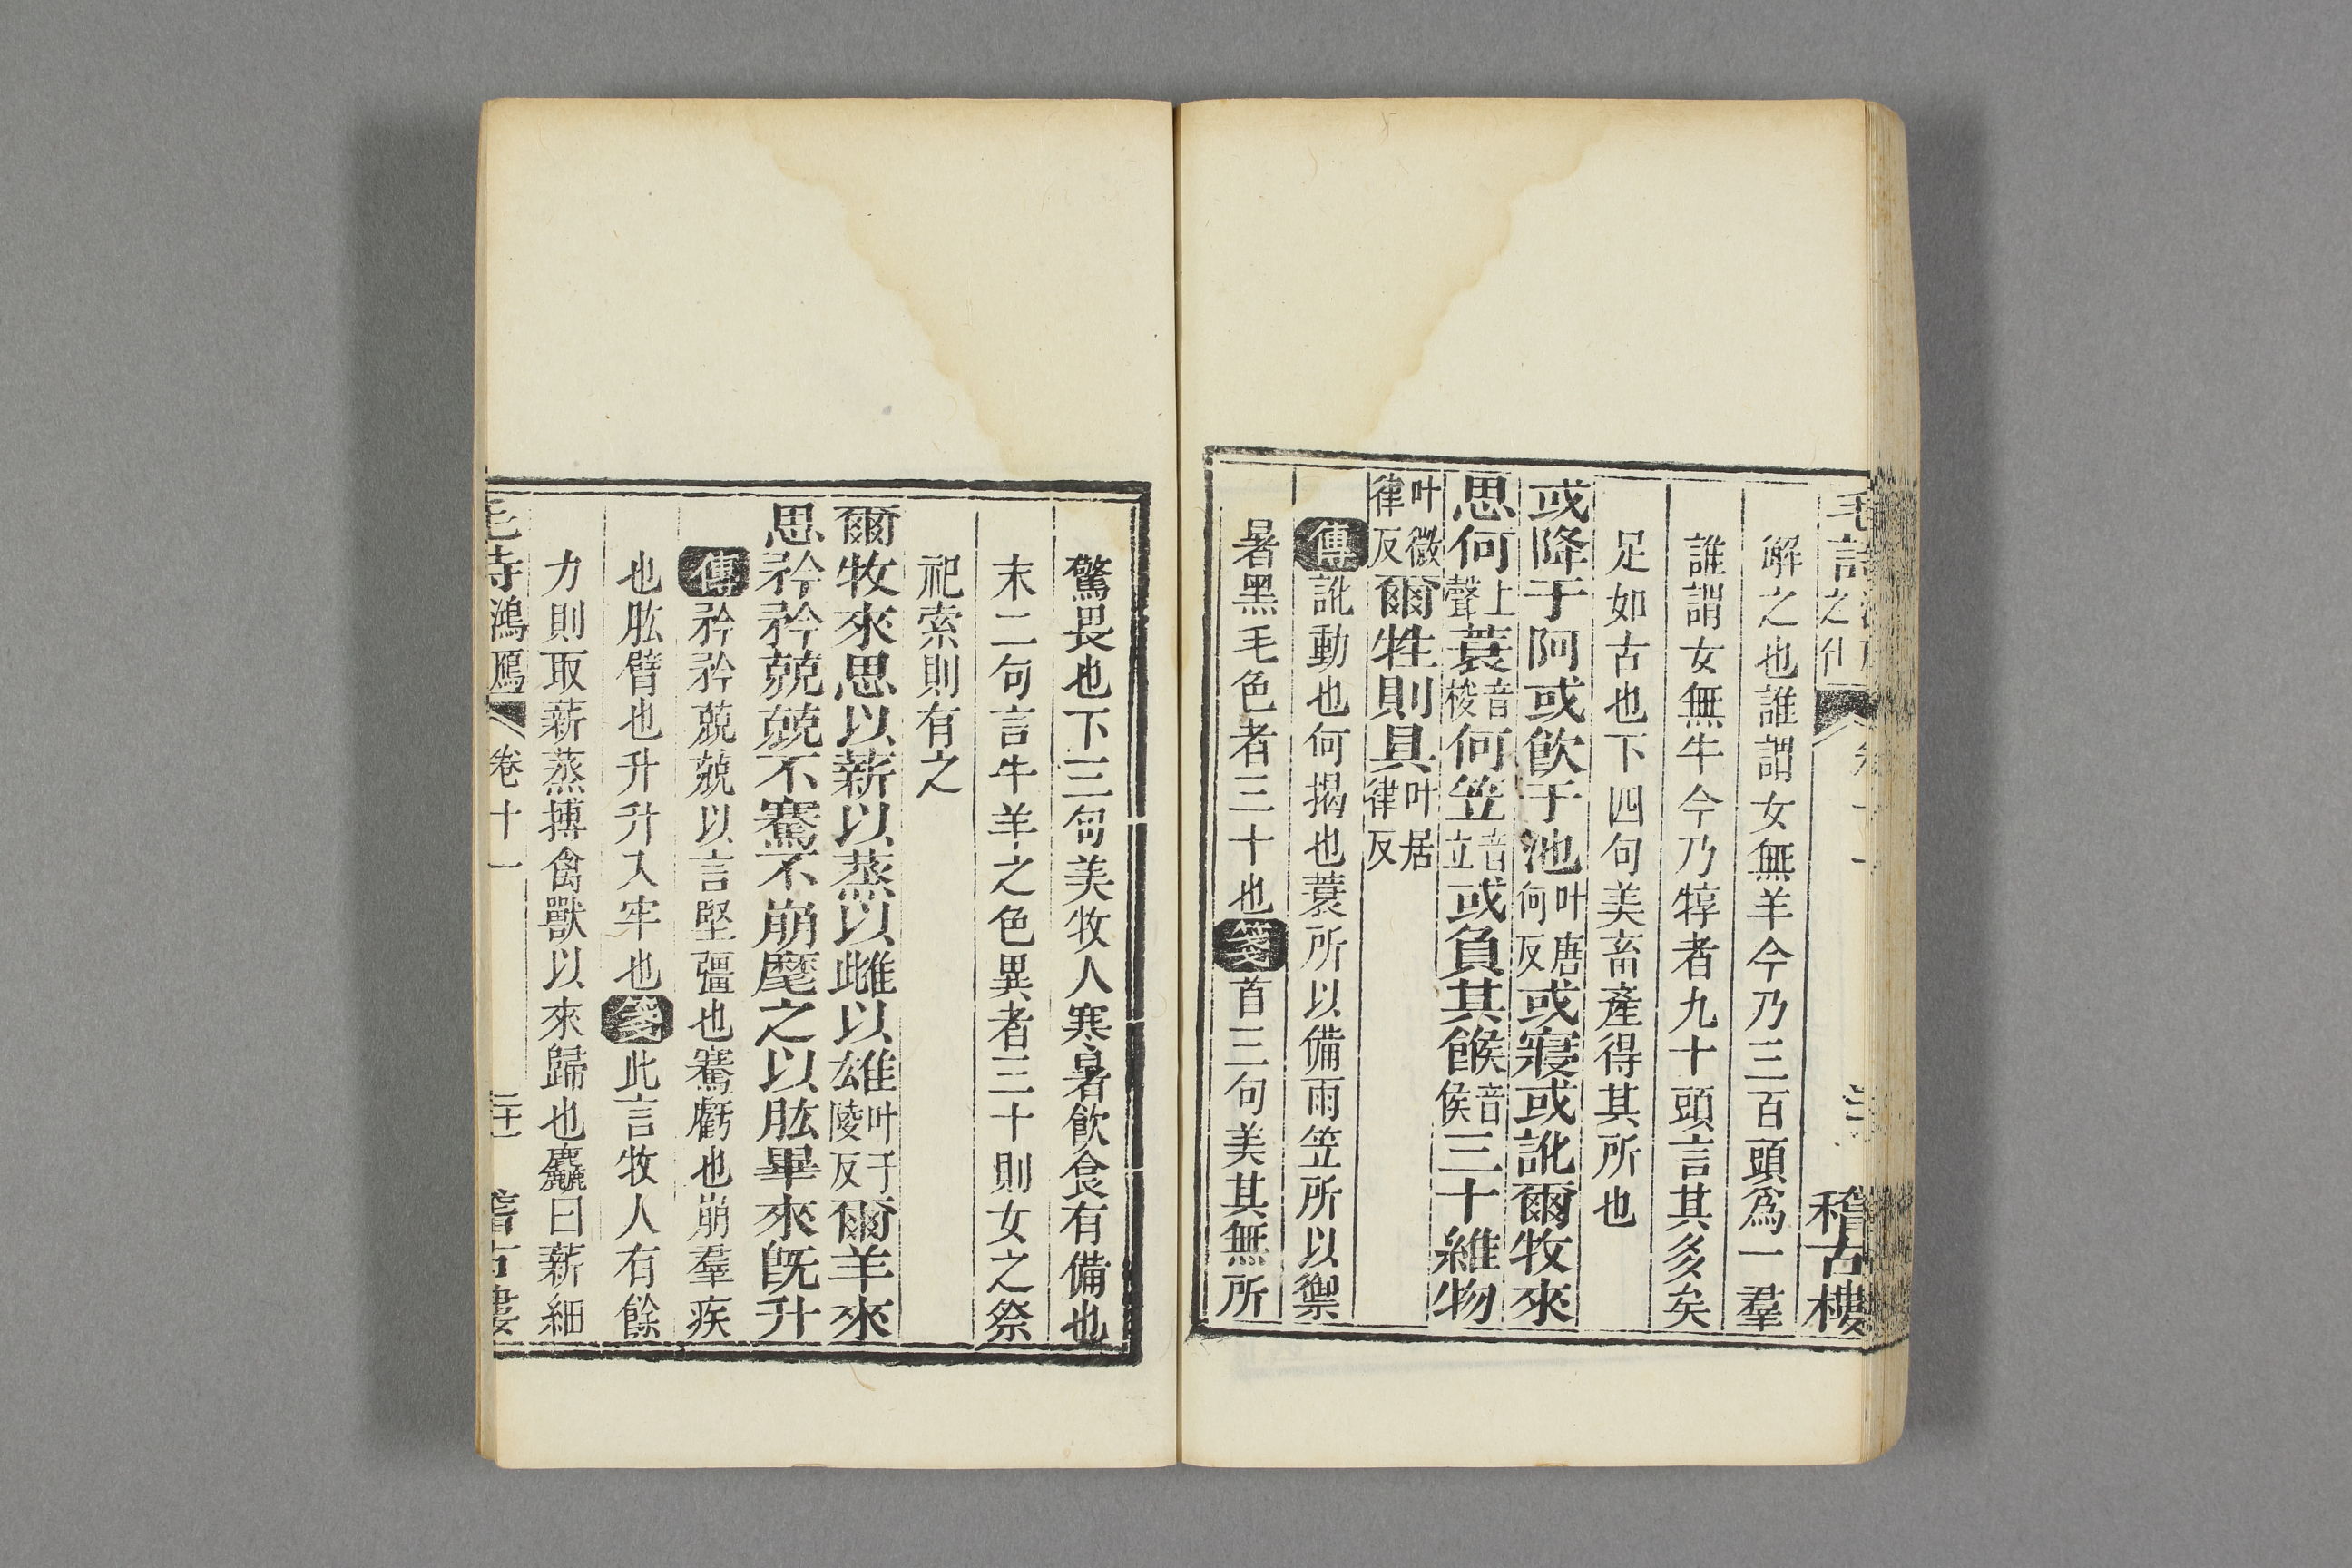 稽古樓
解之也誰謂女無羊今乃三百頭爲一羣
誰謂女無牛今乃犉者九十頭言其多矣
足如古也下四句美畜產得其所也
或降于阿或飲于池叶唐何反或寢或訛爾牧來
思何上聲蓑音梭何笠音立或負其餱音侯三十維物
叶微律反爾牲則具叶居律反
傳訛動也何揭也蓑所以備雨笠所以禦
暑黑毛色者三十也箋首三句美其無所
驚畏也下三句美牧人寒暑飲食有備也
末二句言牛羊之色異者三十則女之祭
祀索則有之
爾牧來思以薪以蒸以雌以雄叶于陵反爾羊來
思矜矜兢兢不騫不崩麾之以肱畢來旣升
傳矜矜兢兢以言堅彊也騫虧也崩羣疾
也肱臂也升升入牢也箋此言牧人有餘
力則取薪蒸搏禽獸以來歸也麤曰薪細
毛詩鴻鴈 卷十一 二十一 稽古樓